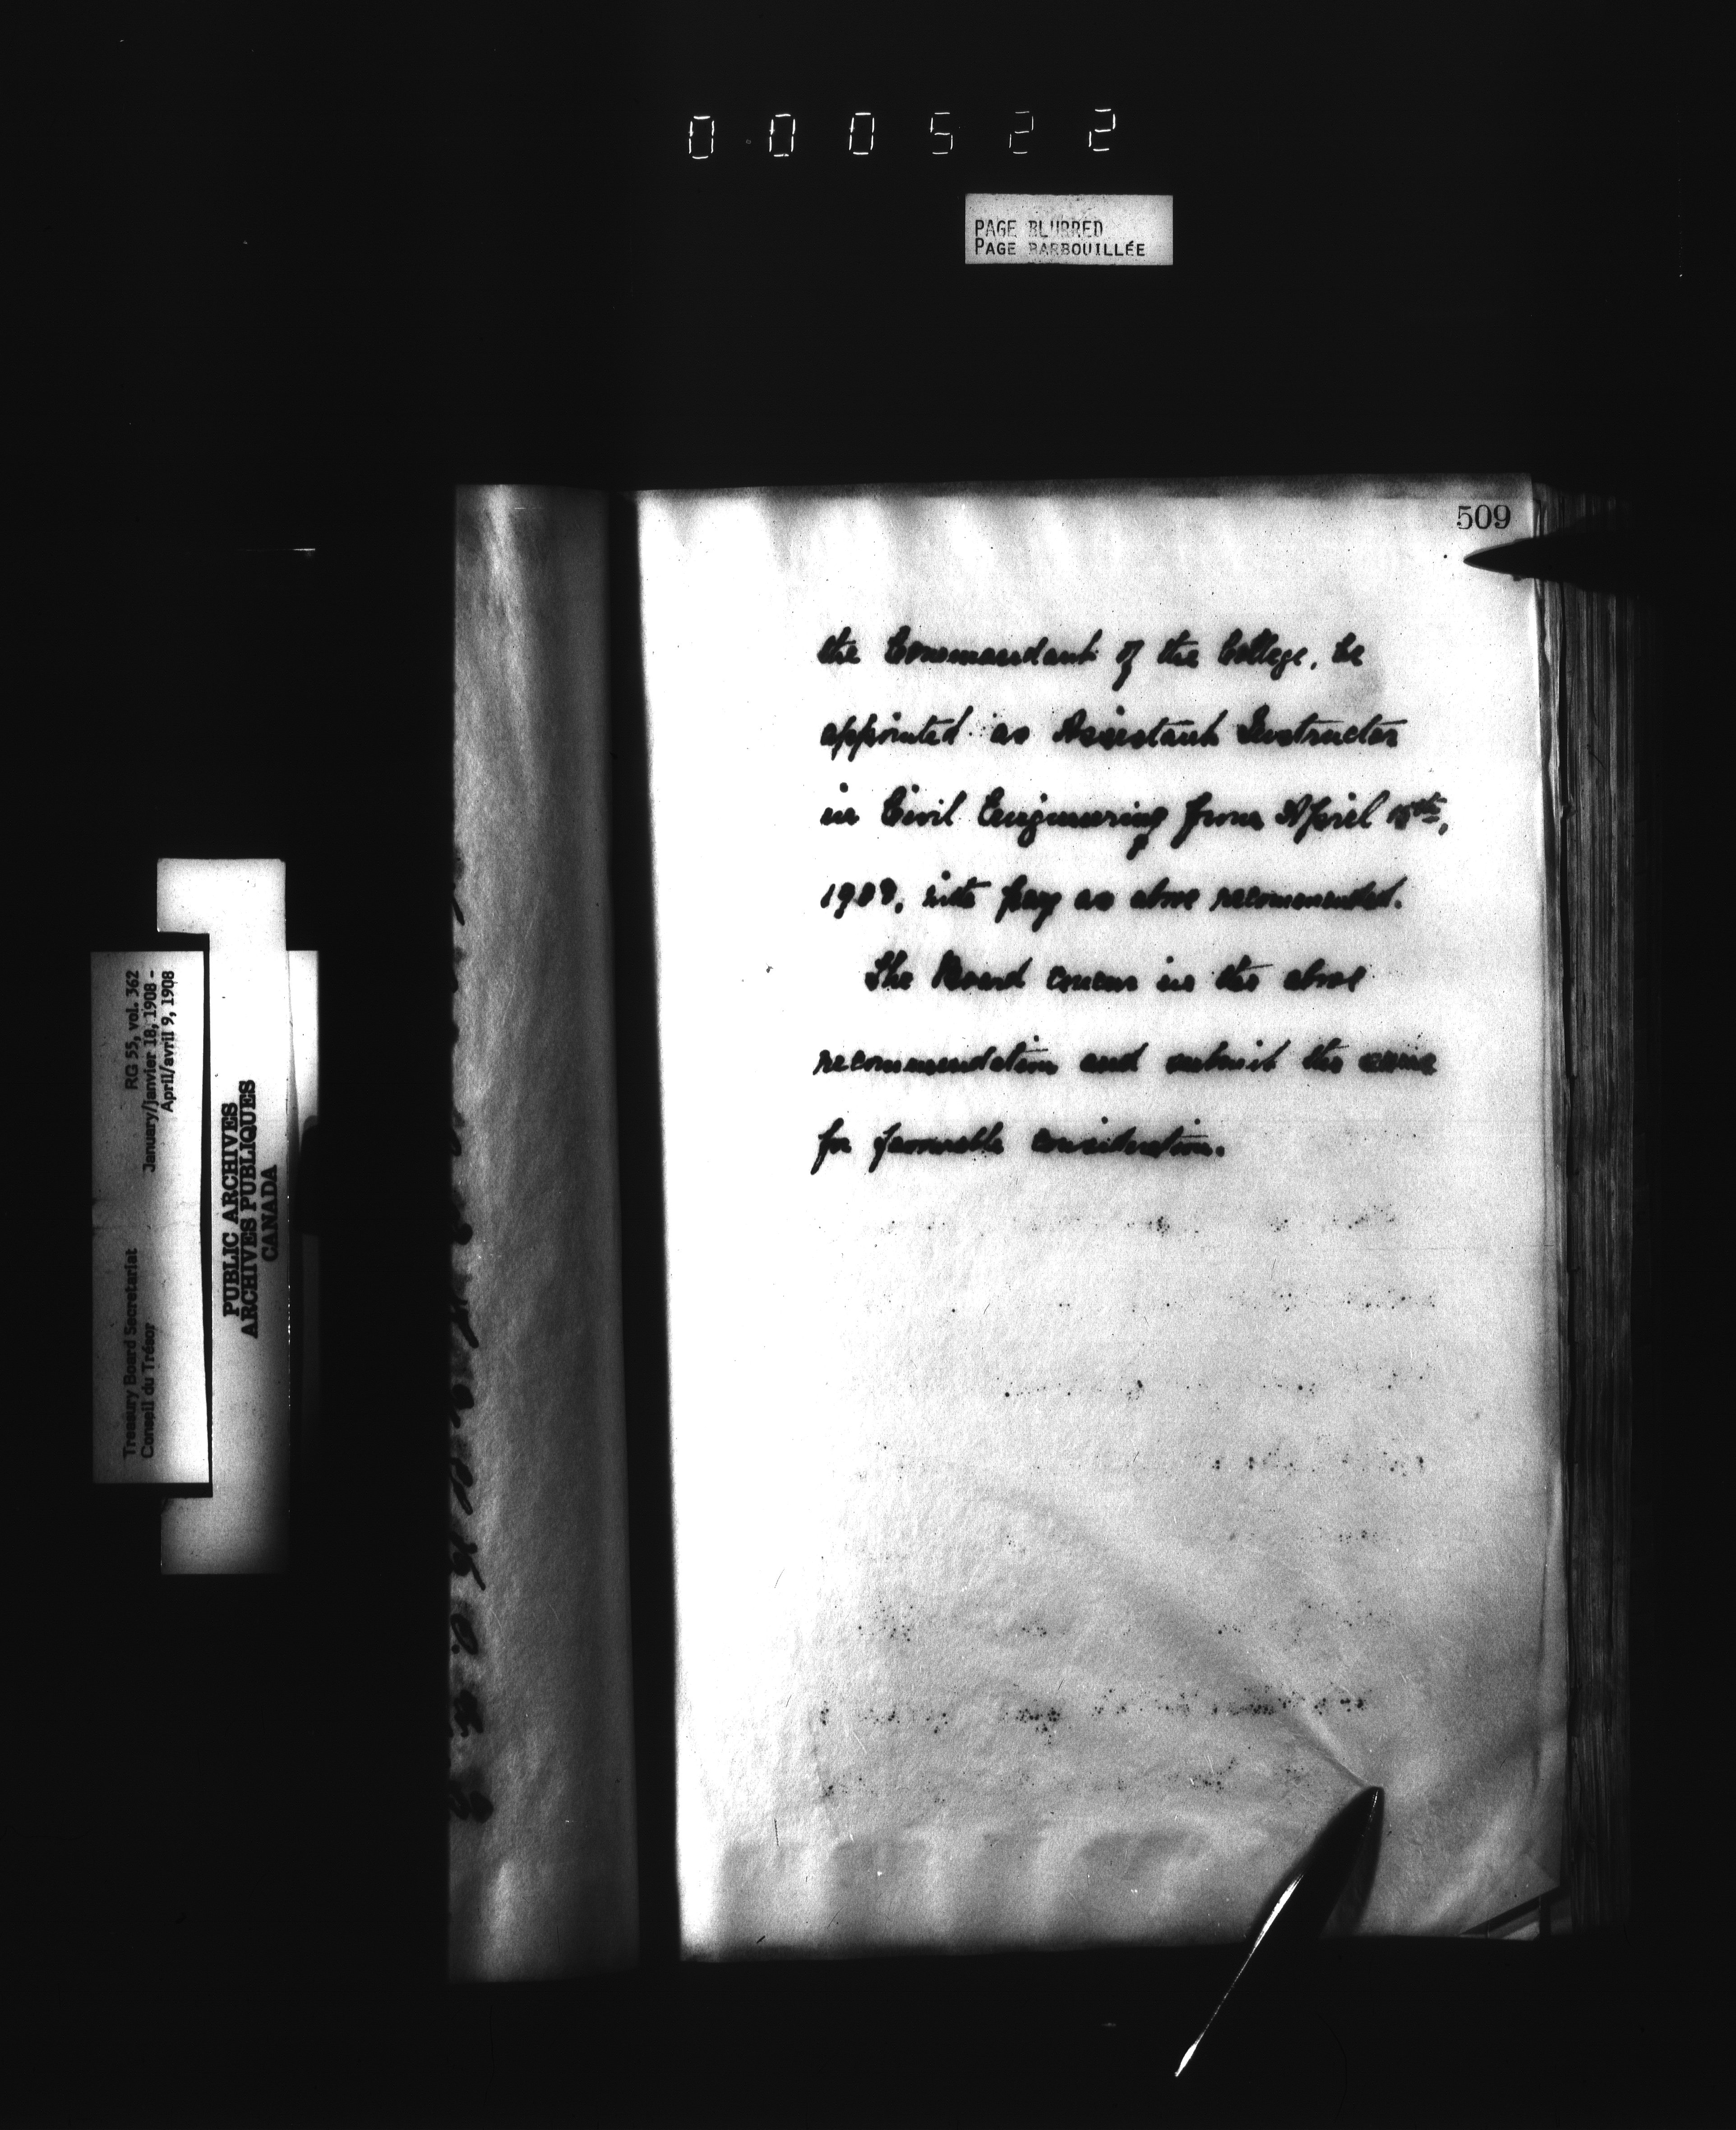 000522
PAGE BLURRED
PAGE BARBOUILLÉE
509
the Commandant of the College, be
appointed as Assistant Instructor
in Civil Engineering from April 15th,
1908, with pay as above recommended.
The Board concur in the above
recommendation and submit the same
for favourable consideration.
Treasury Board Secretariat RG 55, vol. 362
Conseil du Trésor January/janvier 18, 1908 -
April/avril 9, 1908
PUBLIC ARCHIVES
ARCHIVES PUBLIQUES
CANADA